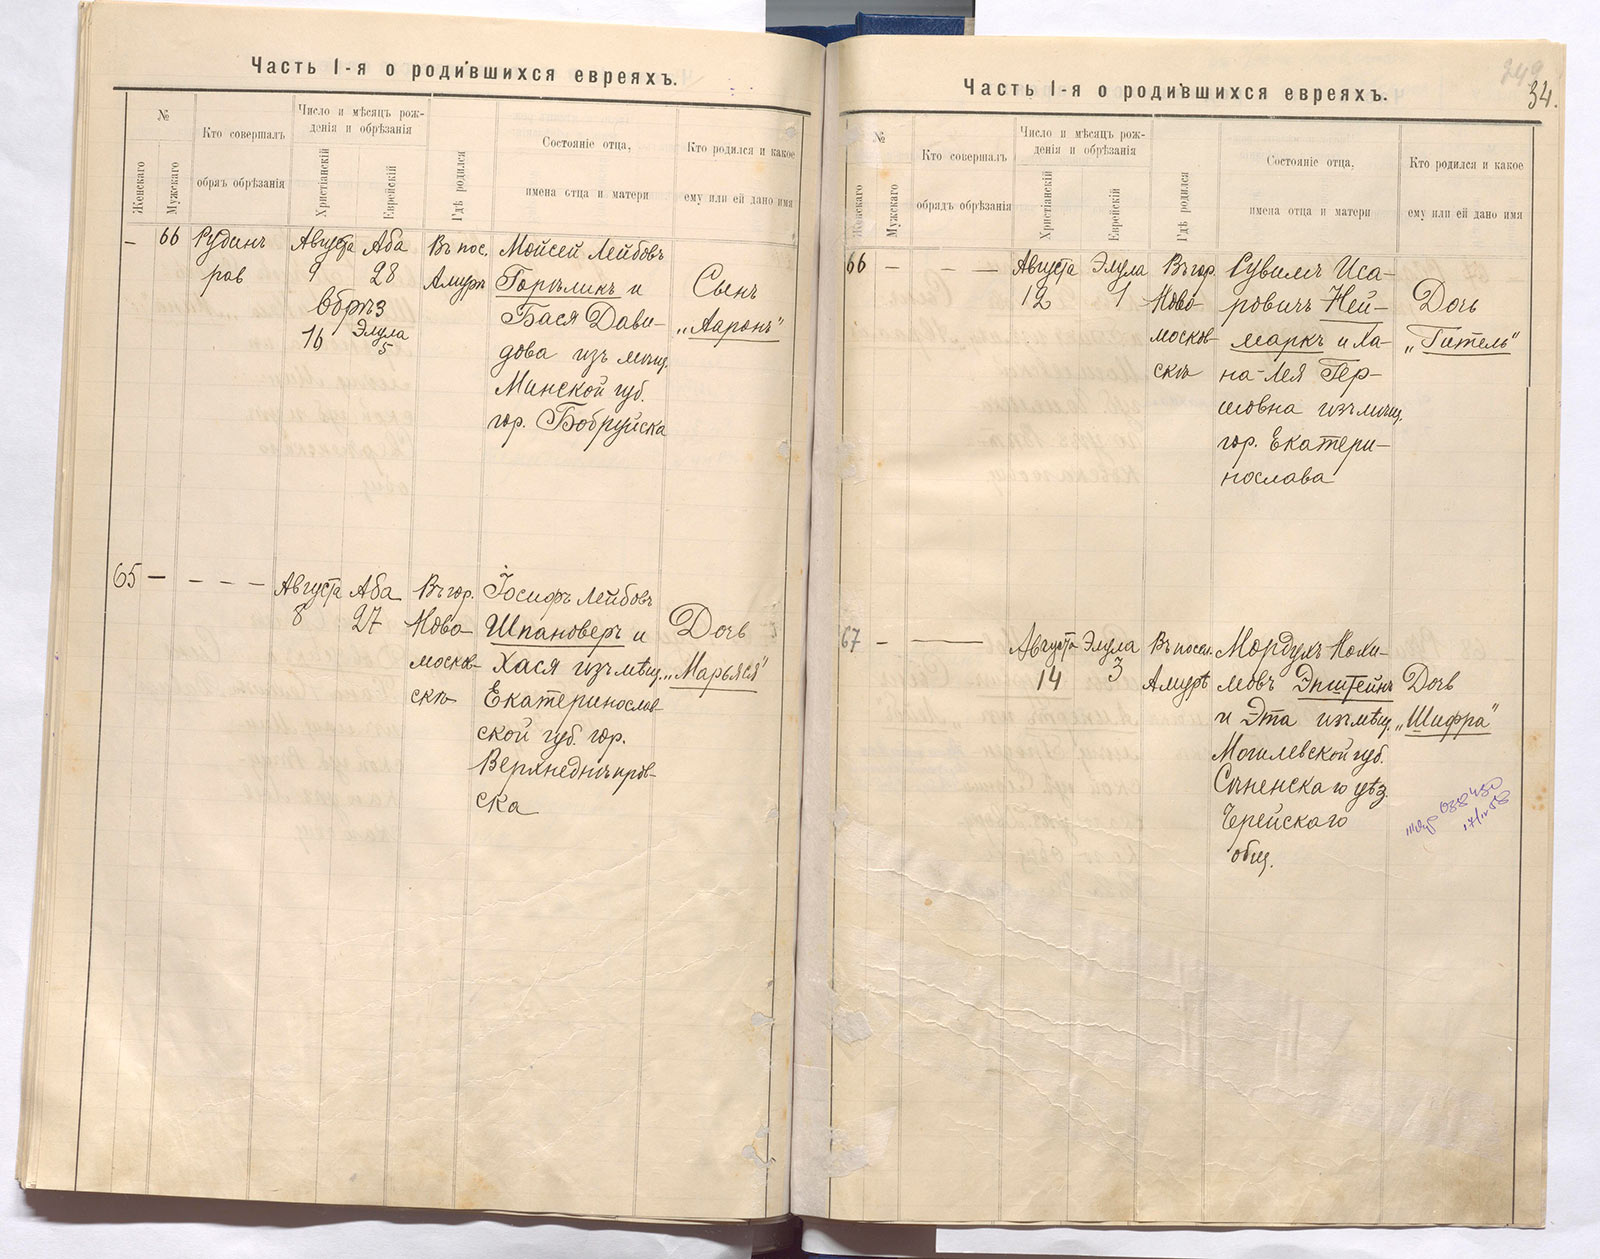 Часть I-я о родившихся евреяхъ.
№
Женскаго
Мужскаго
Кто совершалъ
обрядъ обрѣзанія
Число и мѣсяцъ рож-
денія и обрѣзанія
Христіанскій
Еврейскій
Гдѣ родился
Состояніе отца,
имена отца и матери
Кто родился и какое
ему или ей дано имя
–
66
Рубинъ
рав
Августа
9
Аба
28
Обрѣз
16
Элула
5
Въ пос.
Амурѣ
Мойсей Лейбовъ
Горѣликъ и
Бася Дави-
дова изъ мѣщ.
Минской губ.
гор. Бобруйска
Сынъ
„Ааронъ"
65
–
– – – –
Августа
8
Аба
27
Въ гор.
Ново-
москов-
скѣ
Іосифъ Лейбовъ
Шпановеръ и
Хася изъ мѣщ.
Екатеринослав-
ской губ. гор.
Верхнеднѣпров-
ска
Дочь
„Марьяся"
34.
Часть I-я о родившихся евреяхъ.
№
Женскаго
Мужскаго
Кто совершалъ
обрядъ обрѣзанія
Число и мѣсяцъ рож-
денія и обрѣзанія
Христіанскій
Еврейскій
Гдѣ родился
Состояніе отца,
имена отца и матери
Кто родился и какое
ему или ей дано имя
66
–
– –
Августа
12
Элула
1
Въ гор.
Ново-
москов-
скѣ
Рувимъ Иса-
ровичъ Ней-
маркъ и Ха-
на-Лея Гер-
шовна изъ мѣщ.
гор. Екатери-
нослава
Дочь
„Гитель"
67
–
—
Августа
14
Элула
3
Въ посел.
Амурѣ
Мордухъ Нохи-
мовъ Эпштейнъ
и Эта изъ мѣщ.
Могилевской губ.
Сѣнненскаго уѣз.
Черейскаго
общ.
Дочь
„Шифра"